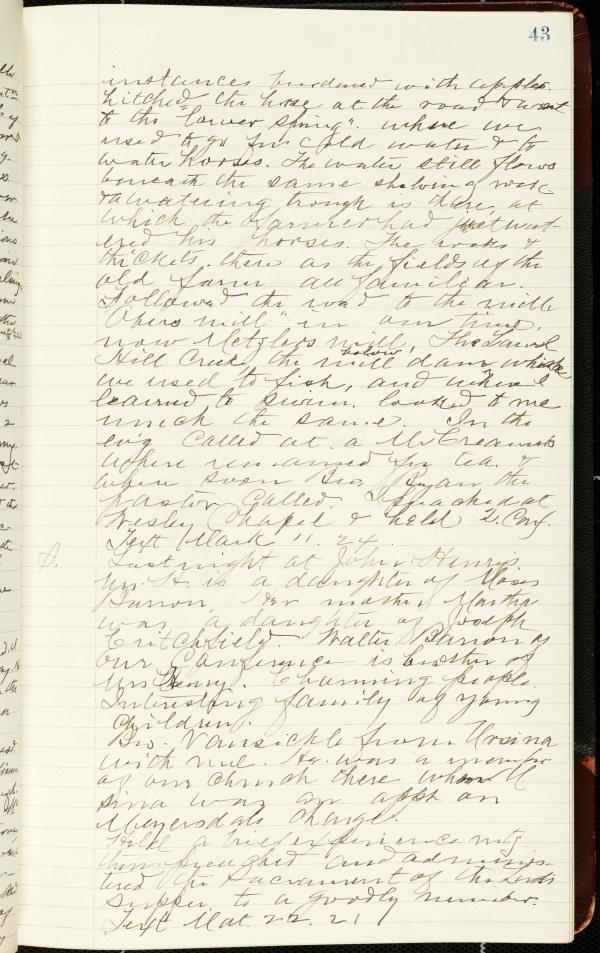 43
instances burdened with apples.
hitched the horse at the road & went
to the "lower spring". where we
used to go for cold water & to
water horses. The water still flows
beneath the same shelving rock
& a watering trough is there at
which the farmer had just wat-
ered his horses. The rocks &
thickets there as the fields of the
old farm all familiar.
Followed the road to the mill
"Obers mill" in our time,
now Metzlers mill, The Laurel
Hill Creek, the mill dam, where
below
we used to fish, and where I
learned to swim, looked to me
much the same. In the
ev'g called at a Mr
where remained for tea. &
where soon Bro. Ryan the
pastor called. I preached at
Wesley Chapel & held Q. Conf.
Text Mark 11. 24.
Last night at John Henry's
Mrs. H. is a daughter of Moses
Barron, Her mother Martha
was a daughter of Joseph
Critchfield. Walter Barron of
our Conference is brother of
Mrs Henry. Charming people.
Interesting family of young
children.
Bro. Vansickle from Ursina
with me. He was a member
of our church there when U
sina was an appt on
Meyersdale charge.
Held a brief experience mtg.
then preached and adminis-
tered the Sacrament of the Lords
supper to a goodly number.
Text Mat. 22. 21